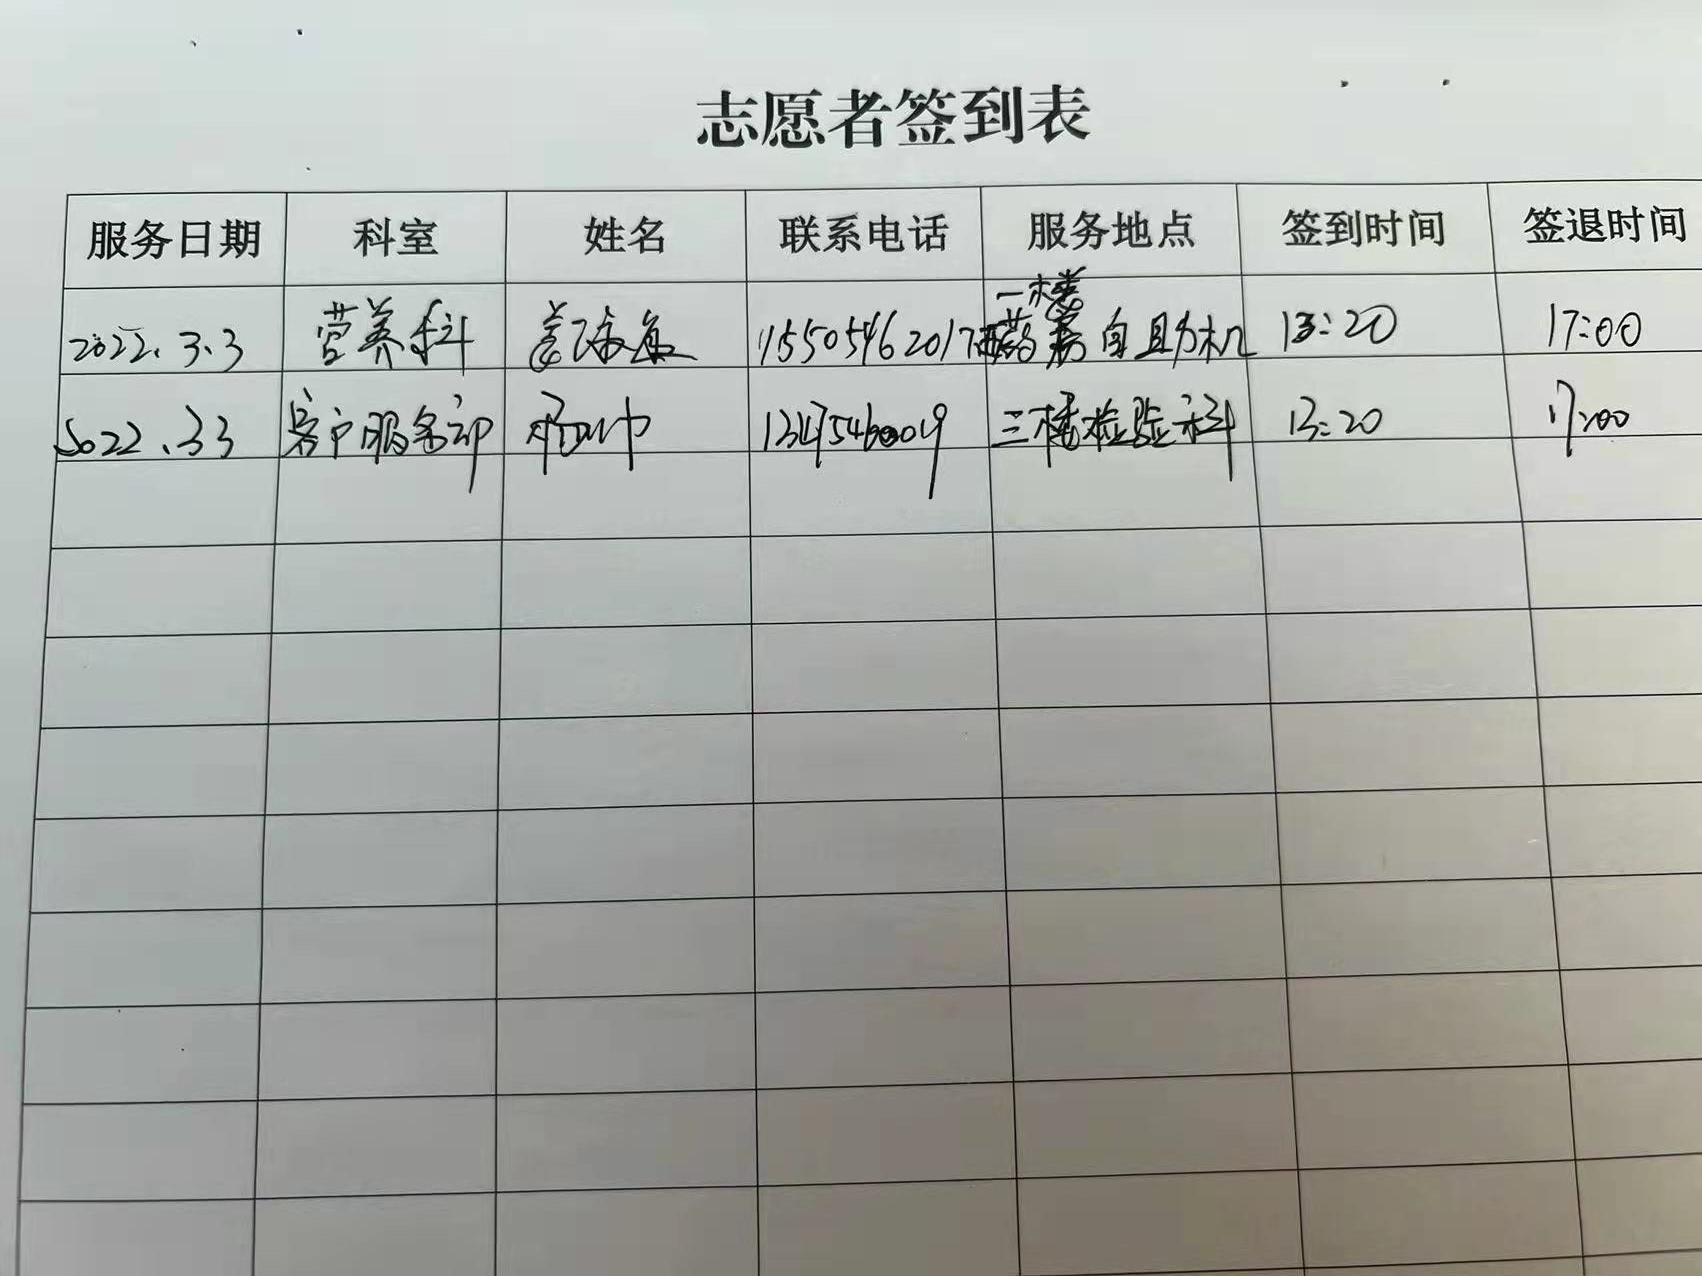 志愿者签到表
服务日期 科室 姓名 联系电话 服务地点 签到时间 签退时间
一楼
2022.3.3 营养科 15505462017 药房自助机 13:20 17:00
2022.3.3 客户服务部 三楼检验科 13:20 17:00